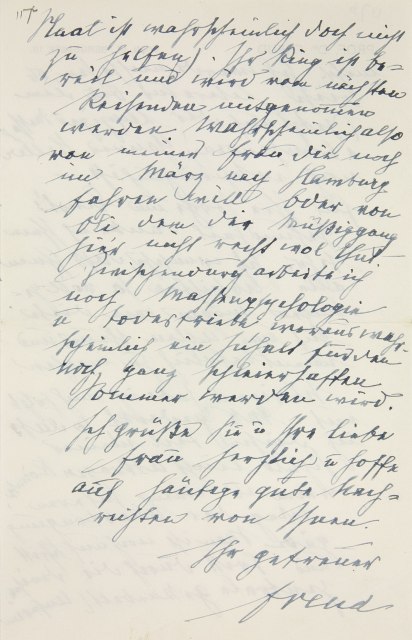 Staat ist wahrscheinlich doch nicht
zu helfen). Ihr Ring ist be-
reit und wird vom nächsten
Reisenden mitgenommen
werden. Wahrscheinlich also
von meiner Frau die noch
im März nach Hamburg
fahren will oder von
Oli dem der Müßiggang
hier nicht recht wol thut.
Zwischendurch arbeite ich
noch Massenpsychologie
u Todestriebe woraus wahr-
scheinlich ein Inhalt für den
noch ganz schleierhaften
Sommer werden wird.
Ich grüße Sie u Ihre liebe
Frau herzlich u hoffe
auf häufige gute Nach-
richten von Ihnen.
Ihr getreuer
Freud